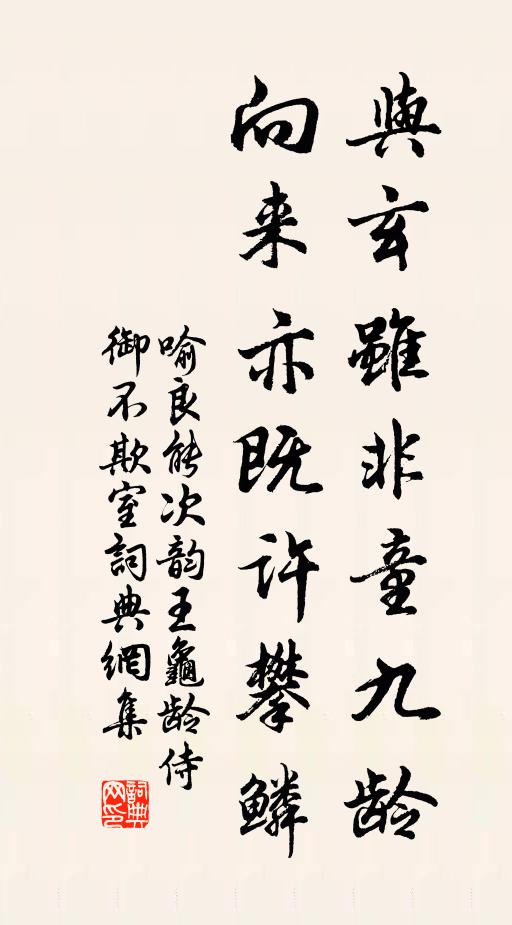 與玄雖非童九龄
向来亦既许攀鳞
喻良能次韵王龜龄侍
御不欺室詞典網集
詞典網印